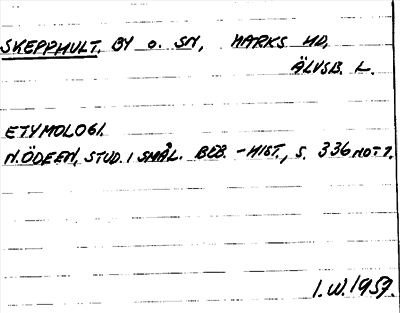 SKEPPHULT, BY o. SN, MARKS HD,
ÄLVSB. L.
ETYMOLOGI.
N. ÖDEEN, STUD. I SMÅL. BEB. -HIST., S. 336 NOT 7.
I.W. 1959.